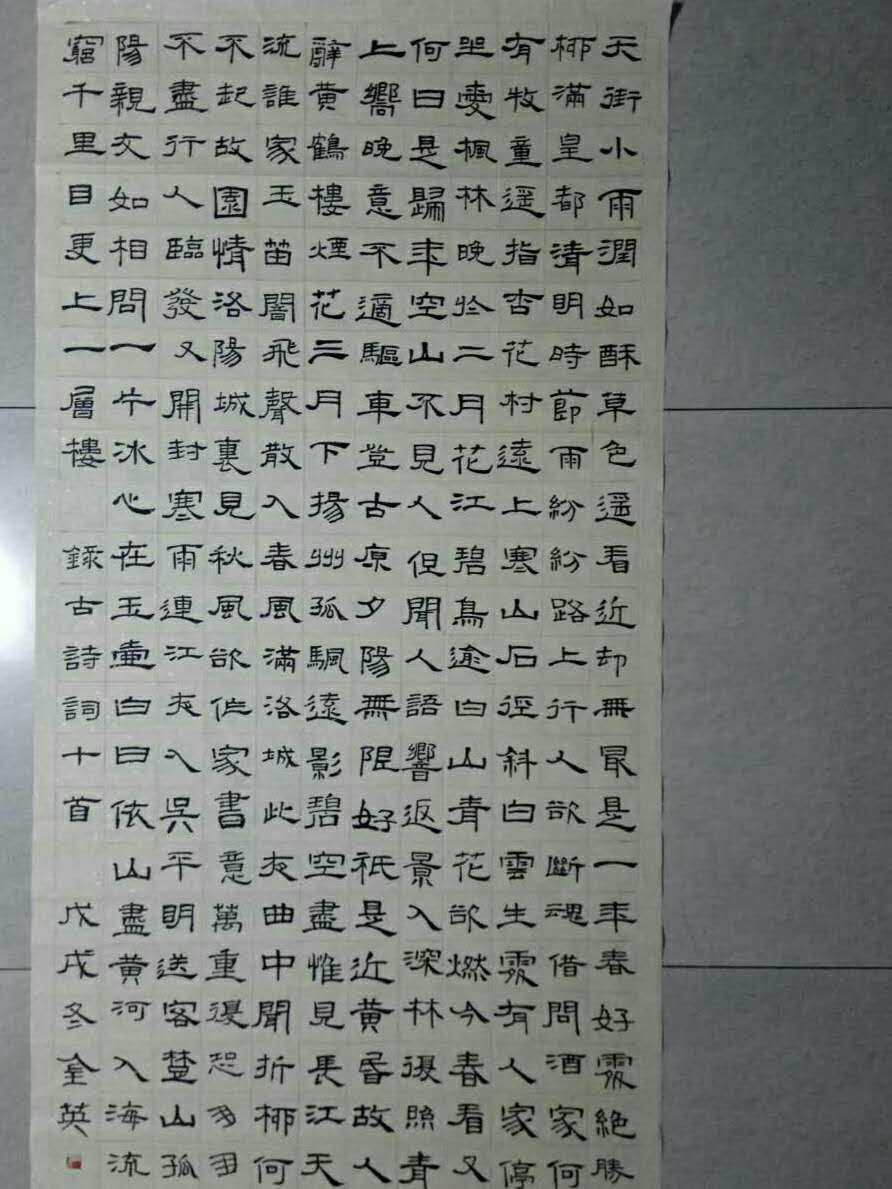 天街小雨潤如酥草色遥看近却無最是一年春好處絶勝
柳滿皇都清明時節雨紛紛路上行人欲斷魂借問酒家何
有牧童遥指杏花村遠上寒山石徑斜白雲生處有人家停
坐愛楓林晚於二月花江碧鳥逾白山青花欲燃今春看又
何日是歸年空山不見人但聞人語響返景入深林復照青
上嚮晚意不適驅車登古原夕陽無限好祇是近黄昏故人
辭黄鶴樓煙花三月下揚州孤颿遠影碧空盡惟見長江天
流誰家玉笛闇飛聲散入春風滿洛城此夜曲中聞折柳何
不起故園情洛陽城裏見秋風欲作家書意萬重復恐匆匆
不盡行人臨發又開封寒雨連江夜入吳平明送客楚山孤
陽親友如相問一片冰心在玉壺白日依山盡黄河入海流
窮千里目更上一層樓 錄古詩詞十首 戊戌冬全英